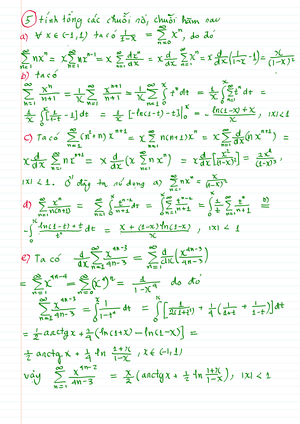 ⑤ tính tổng các chuỗi số, chuỗi hàm sau
a) ∀ x ∈ (-1,1) ta có 1/(1-x) = Σ_{n=0}^∞ x^n, do đó
Σ_{n=1}^∞ nx^n = x Σ_{n=1}^∞ nx^{n-1} = x Σ_{n=1}^∞ dx^n/dx = x d/dx Σ_{n=1}^∞ x^n = x d/dx (1/(1-x) - 1) = x/(1-x)^2
b) ta có
Σ_{n=1}^∞ x^n/(n+1) = 1/x Σ_{n=1}^∞ x^{n+1}/(n+1) = 1/x Σ_{n=1}^∞ ∫_0^x t^n dt = 1/x ∫_0^x Σ_{n=1}^∞ t^n dt =
1/x ∫_0^x [1/(1-t) - 1] dt = 1/x [-ln(1-t) - t] |_0^x = - (ln(1-x) + x)/x, |x| < 1
c) Ta có Σ_{n=1}^∞ (n²+n) x^{n+1} = x Σ_{n=1}^∞ n(n+1) x^n = x Σ_{n=1}^∞ d/dx (n x^{n+1}) =
x d/dx Σ_{n=1}^∞ n x^{n+1} = x d/dx (x Σ_{n=1}^∞ n x^n) = x d/dx [x²/(1-x)²] = 2x²/(1-x)³,
|x| < 1. Ở đây ta sử dụng a) Σ_{n=1}^∞ nx^n = x/(1-x)²
d) Σ_{n=1}^∞ x^n/(n(n+1)) = Σ_{n=1}^∞ ∫_0^x t^{n-1}/(n+1) dt = ∫_0^x Σ_{n=1}^∞ t^{n-1}/(n+1) dt = ∫_0^x 1/t Σ_{n=1}^∞ t^n/(n+1) dt = b)
- ∫_0^x (ln(1-t) + t)/t² dt = (x + (1-x) ln(1-x))/x, |x| < 1
e) Ta có d/dx Σ_{n=1}^∞ x^{4n-3}/(4n-3) = Σ_{n=1}^∞ d/dx (x^{4n-3}/(4n-3))
= Σ_{n=1}^∞ x^{4n-4} = Σ_{n=0}^∞ (x^4)^n = 1/(1-x^4) do đó
Σ_{n=1}^∞ x^{4n-3}/(4n-3) = ∫_0^x 1/(1-t^4) dt = ∫_0^x [1/(2(1+t²)) + 1/4 (1/(1+t) + 1/(1-t))] dt
= 1/2 arctg x + 1/4 (ln(1+x) - ln(1-x)) =
1/2 arctg x + 1/4 ln (1+x)/(1-x), x ∈ (-1,1)
vậy Σ_{n=1}^∞ x^{4n-2}/(4n-3) = x/2 (arctg x + 1/2 ln (1+x)/(1-x)), |x| < 1